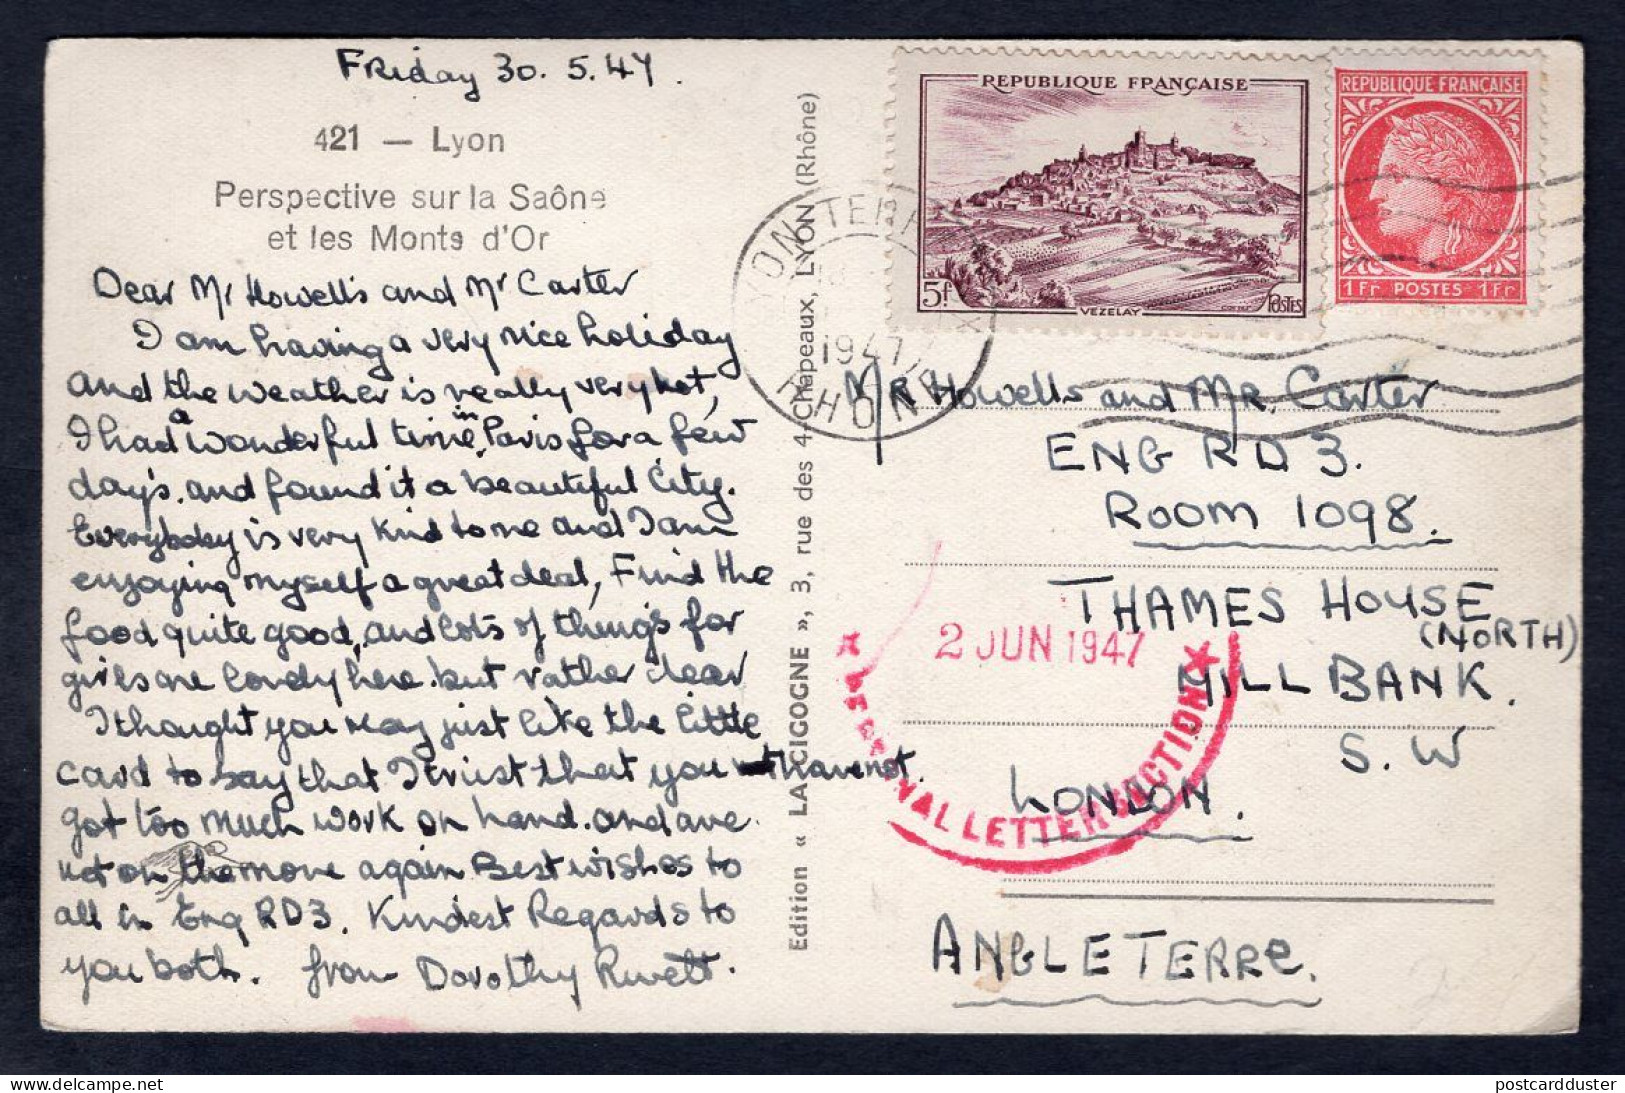 Friday 30. 5. 47.
421 — Lyon
Perspective sur la Saône
et les Monts d'Or
Dear Mr Howells and Mr Carter
I am having a very nice holiday
and the weather is really very hot,
I had a wonderful time in Paris for a few
days. and found it a beautiful City.
Everybody is very kind to me and I am
enjoying myself a great deal, Find the
food quite good, and lots of things for
girls are lovely here. but rather dear
I thought you may just like the little
card to say that I trust that you have not
got too much work on hand. and are
not on the move again Best wishes to
all in Eng RD3. Kindest Regards to
you both. from Dorothy
Edition « LA CIGOGNE », 3, rue des 4-Chapeaux, LYON (Rhône)
REPUBLIQUE FRANÇAISE
5f
VEZELAY
POSTES
REPUBLIQUE FRANÇAISE
1 Fr POSTES 1 Fr
LYON TERREAUX
1947
RHONE
MR Howells and MR. Carter
ENG RD 3.
ROOM 1098.
THAMES HOUSE
(NORTH)
MILLBANK.
S. W
LONDON.
ANGLETERRE.
2 JUN 1947
PERSONAL LETTER SECTION
postcardduster